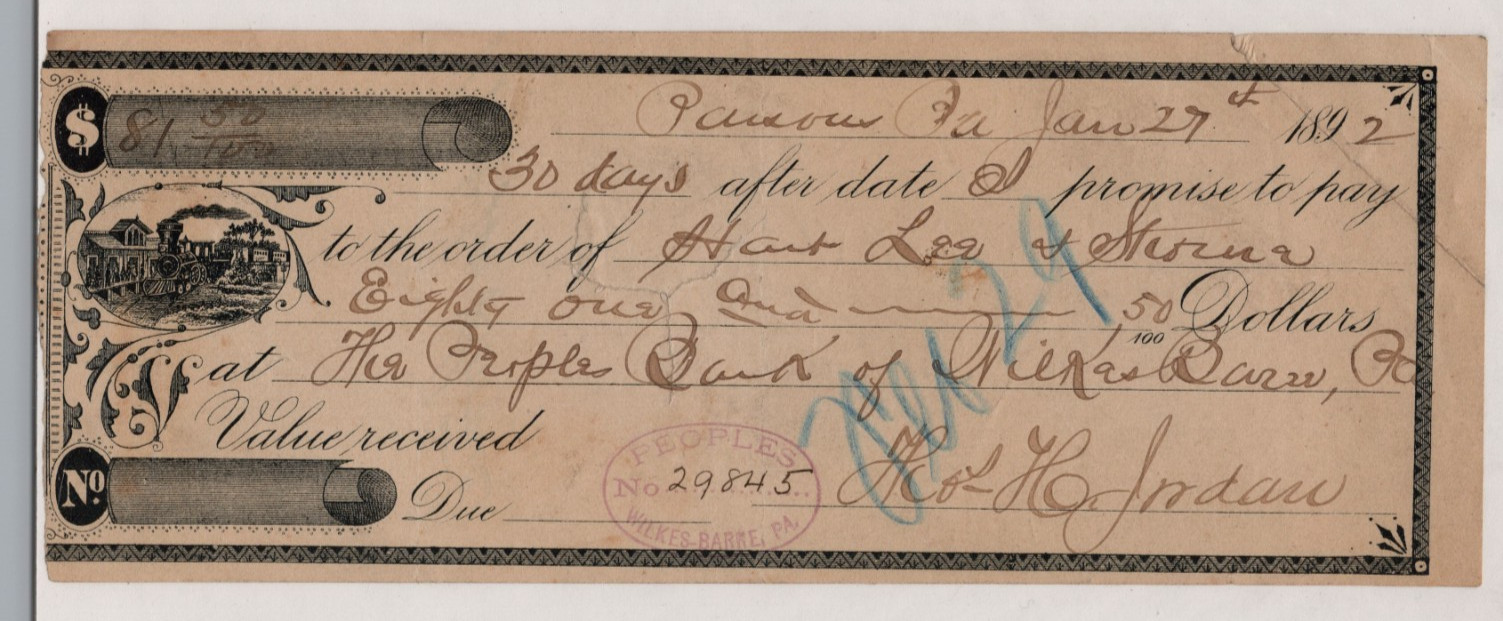 $ 81 50/100
Parsons Pa Jan 27th 1892
30 days after date I promise to pay
to the order of Hart Lee & Storne
Eighty one and 50/100 Dollars
at The Peoples Bank of Wilkes Barre, Pa
Value received
No Due
PEOPLES
No. 29845
WILKES-BARRE, PA.
H. Jordan
Feb 29